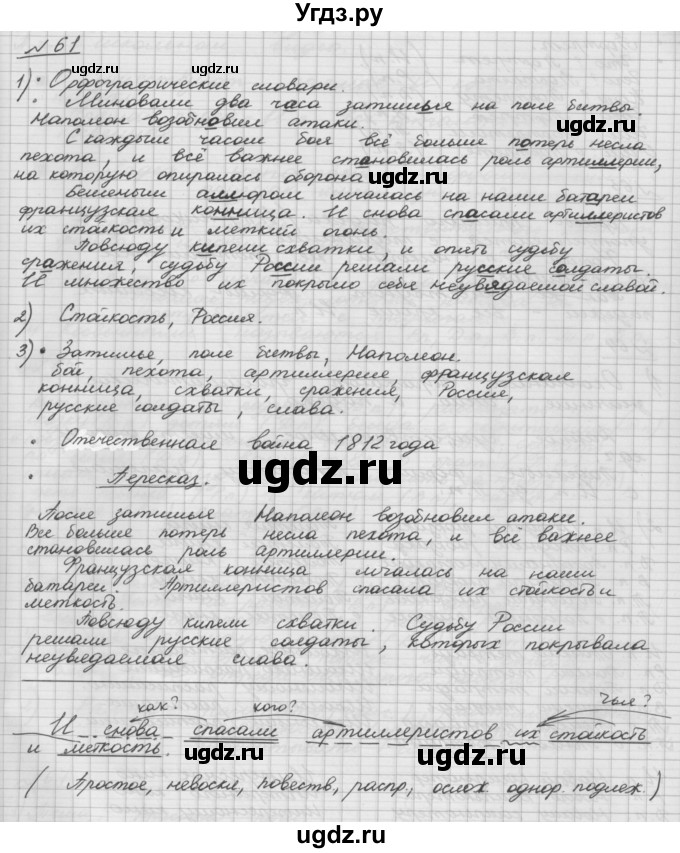 Угдз.ру
№ 61
1) • Орфографические словари.
• Миновали два часа затишья на поле битвы.
Наполеон возобновил атаки.
С каждым часом боя всё больше потерь несла
пехота, и всё важнее становилась роль артиллерии,
на которую опиралась оборона.
Бешеным аллюром мчалась на наши батареи
французская конница. И снова спасали артиллеристов
их стойкость и меткий огонь.
Повсюду кипели схватки, и опять судьбу
сражения, судьбу России решали русские солдаты.
И множество их покрыло себя неувядаемой славой.
2) Стойкость, Россия.
3) • Затишье, поле битвы, Наполеон.
бой, пехота, артиллерия, французская
конница, схватки, сражения, Россия,
русские солдаты, слава.
• Отечественная война 1812 года
• Пересказ.
После затишья Наполеон возобновил атаки.
Все больше потерь несла пехота, и всё важнее
становилась роль артиллерии.
Французская конница мчалась на наши
батареи. Артиллеристов спасала их стойкость и
меткость.
Повсюду кипели схватки. Судьбу России
решали русские солдаты, которых покрывала
неувядаемая слава.
как? кого? чья?
И снова спасали артиллеристов их стойкость
и меткость.
(Простое, невоскл, повеств, распр, ослож. однор. подлеж.)
ugdz.ru
ugdz.ru
ugdz.ru
ugdz.ru
ugdz.ru
ugdz.ru
ugdz.ru
ugdz.ru
ugdz.ru
ugdz.ru
ugdz.ru
ugdz.ru
ugdz.ru
ugdz.ru